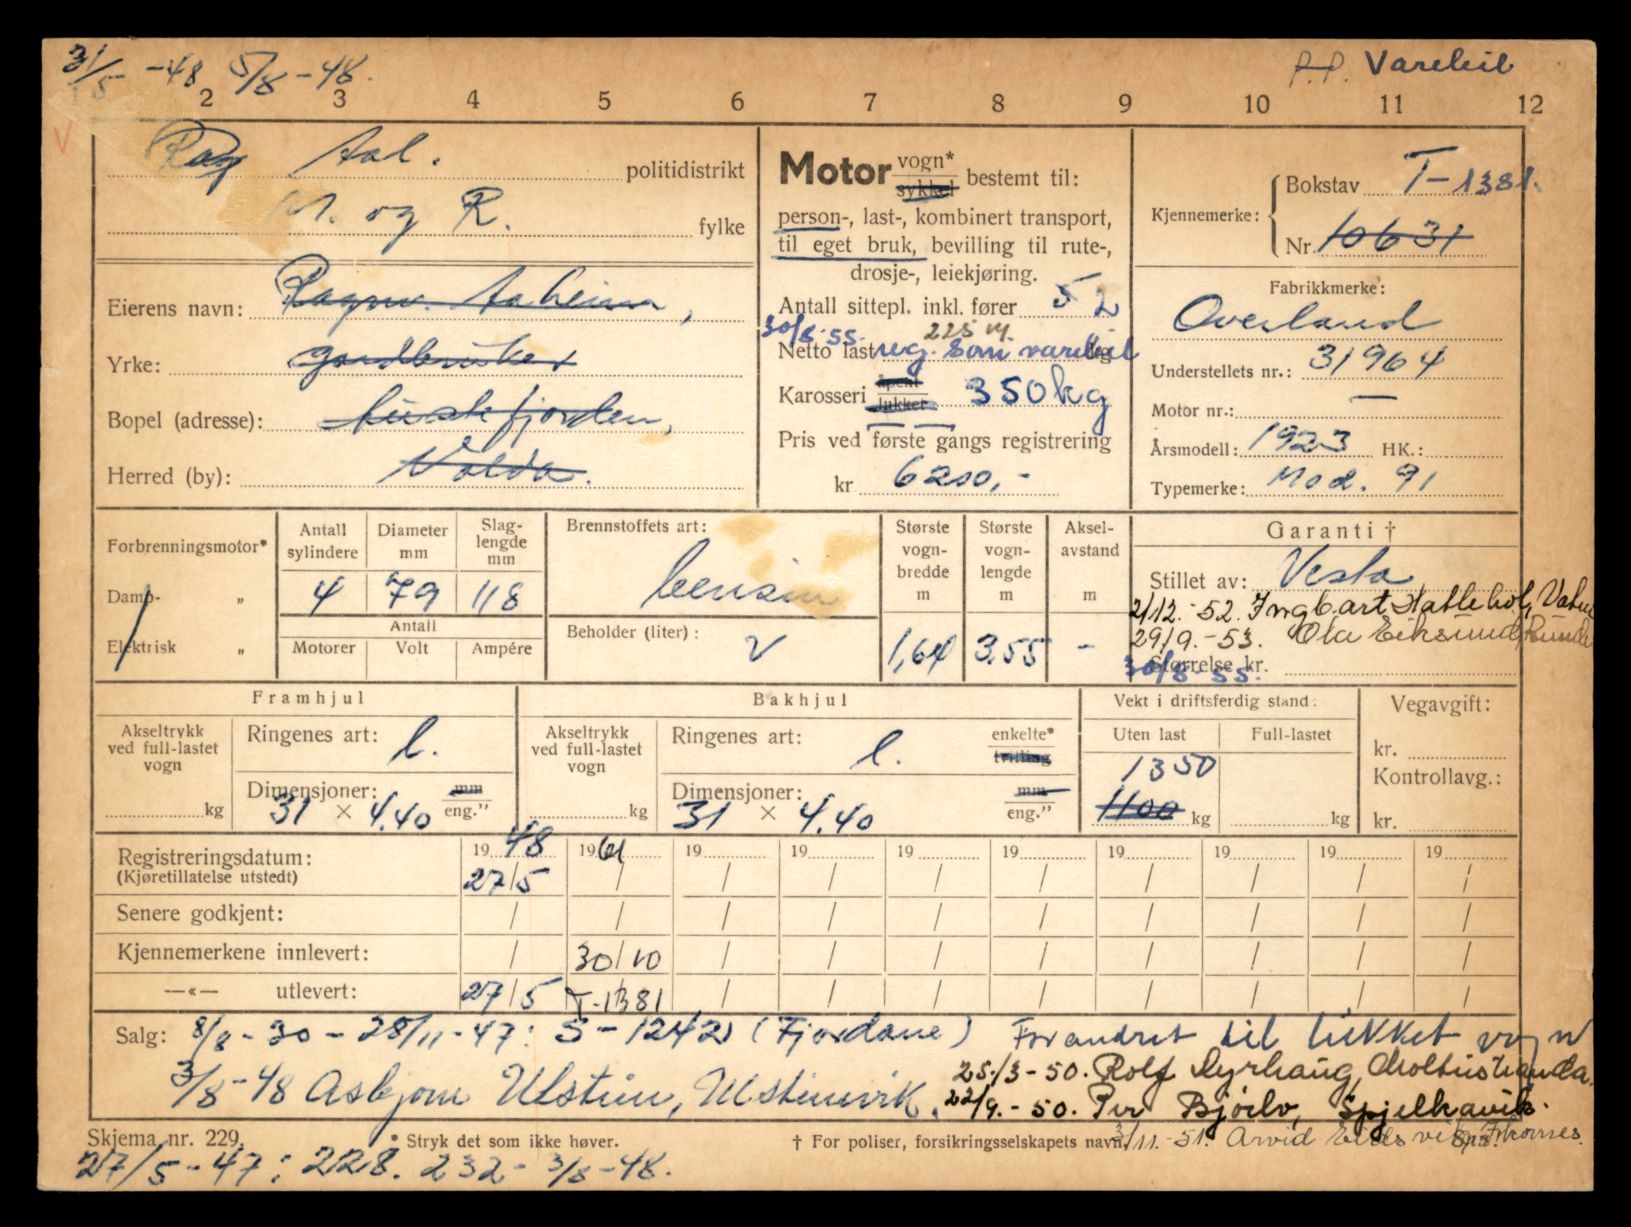 31/5 -48 5/8 -48.
P.P. Varebil
2 3 4 5 6 7 8 9 10 11 12
V
Aal. politidistrikt
M. og R. fylke
Eierens navn: Ragnv. Aaheim,
Yrke: gardbruker
Bopel (adresse): Austefjorden,
Herred (by): Volda.
Motor vogn* sykkel bestemt til:
person-, last-, kombinert transport,
til eget bruk, bevilling til rute-,
drosje-, leiekjøring.
Antall sittepl. inkl. fører 5 2
30/8-55. 225
Netto last reg. som varebil kg
Karosseri åpent lukket 350 kg
Pris ved første gangs registrering
kr 6200,-
Kjennemerke: Bokstav T-1381.
Nr. 10631
Fabrikkmerke:
Overland
Understellets nr.: 31964
Motor nr.: —
Årsmodell: 1923 HK.:
Typemerke: Mod. 91
Forbrenningsmotor*
Damp- „
Elektrisk „
Antall sylindere Diameter mm Slag-lengde mm
4 79 118
Antall
Motorer Volt Ampére
Brennstoffets art:
bensin
Beholder (liter): V
Største vogn-bredde m Største vogn-lengde m Aksel-avstand m
1,64 3,55 -
Garanti †
Stillet av: Vesta
2/12.-52. Ingb.art Hatlehol, Vatne
29/9.-53. Ola Eiksund, Runde
Størrelse kr.
30/8-55.
Framhjul
Akseltrykk ved full-lastet vogn
kg
Ringenes art: l.
Dimensjoner: mm
31 × 4.40 eng."
Bakhjul
Akseltrykk ved full-lastet vogn
kg
Ringenes art: l. enkelte* tvilling
Dimensjoner: mm
31 × 4.40 eng."
Vekt i driftsferdig stand:
Uten last Full-lastet
1350
1100 kg kg
Vegavgift:
kr.
Kontrollavg.:
kr.
Registreringsdatum: 19 48 19 61 19 19 19 19 19 19 19 19
(Kjøretillatelse utstedt) 27/5 / / / / / / / / /
Senere godkjent: / / / / / / / / / /
Kjennemerkene innlevert: / 30/10 / / / / / / / /
—«— utlevert: 27/5 T-1381 / / / / / / / /
Salg: 8/8-30 - 28/11-47: S-1242 (Fjordane) Forandret til lukket vogn
3/8-48 Asbjørn Ulstein, Ulsteinvik. 25/3-50. Rolf Dyrhaug, Moltustranda.
22/9.-50. Per Bjørlo, Spjelkavik.
Skjema nr. 229. * Stryk det som ikke høver. † For poliser, forsikringsselskapets navn.
3/11.-51. Arvid
27/5-47: 228. 232- 3/8-48.